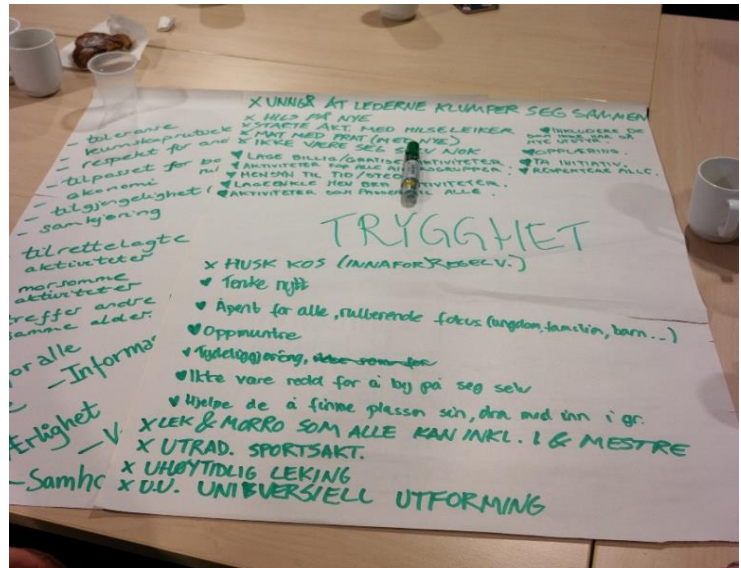 - toleranse
- kunnskap
- respekt for and
- tilpasset for
økonomi
- tilgjengelighet (
- samkjøring
tilrettelagte
aktiviteter
morsomme
aktiviteter
treffer andre
samme alder.
for alle
- Informa
Ærlighet
- V
- Samho
X UNNGÅ AT LEDERNE KLUMPER SEG SAMMEN
X HILS PÅ NYE
X STARTE AKT. MED HILSELEIKER
X MAT MED PRAT (MED NYE)
X IKKE VÆRE SEG SELV NOK
♥ LAGE BILLIG/GRATIS AKTIVITETER
♥ AKTIVITETER FOR ALLE ALDERSGRUPPER.
♥ HENSYN TIL TID/STED
♥ LAGE ENKLE MEN BRA AKTIVITETER.
♥ AKTIVITETER SOM PASSER TIL ALLE.
♥ INKLUDERE DE
SOM IKKE HAR SÅ
MYE UTSTYR.
♥ OPPLÆRING.
♥ TA INITIATIV.
♥ RESPEKTERE ALLE.
TRYGGHET
X HUSK KOS (INNAFOR REGELV.)
♥ Tenke nytt
♥ Åpent for alle, rullerende fokus (ungdom, familien, barn...)
♥ Oppmuntre
♥ Tydeliggjøring,
♥ Ikke være redd for å by på seg selv
♥ Hjelpe de å finne plassen sin, dra med inn i gr.
X LEK & MORRO SOM ALLE KAN INKL. I & MESTRE
X UTRAD. SPORTSAKT.
X UHØYTIDLIG LEKING
X U.U. UNIVERSIELL UTFORMING